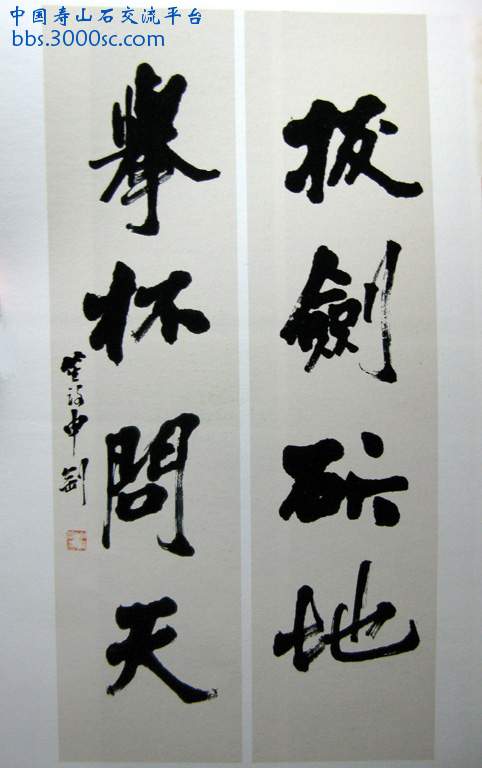 中国寿山石交流平台
bbs.3000sc.com
拔劍斫地
舉杯問天
申劍